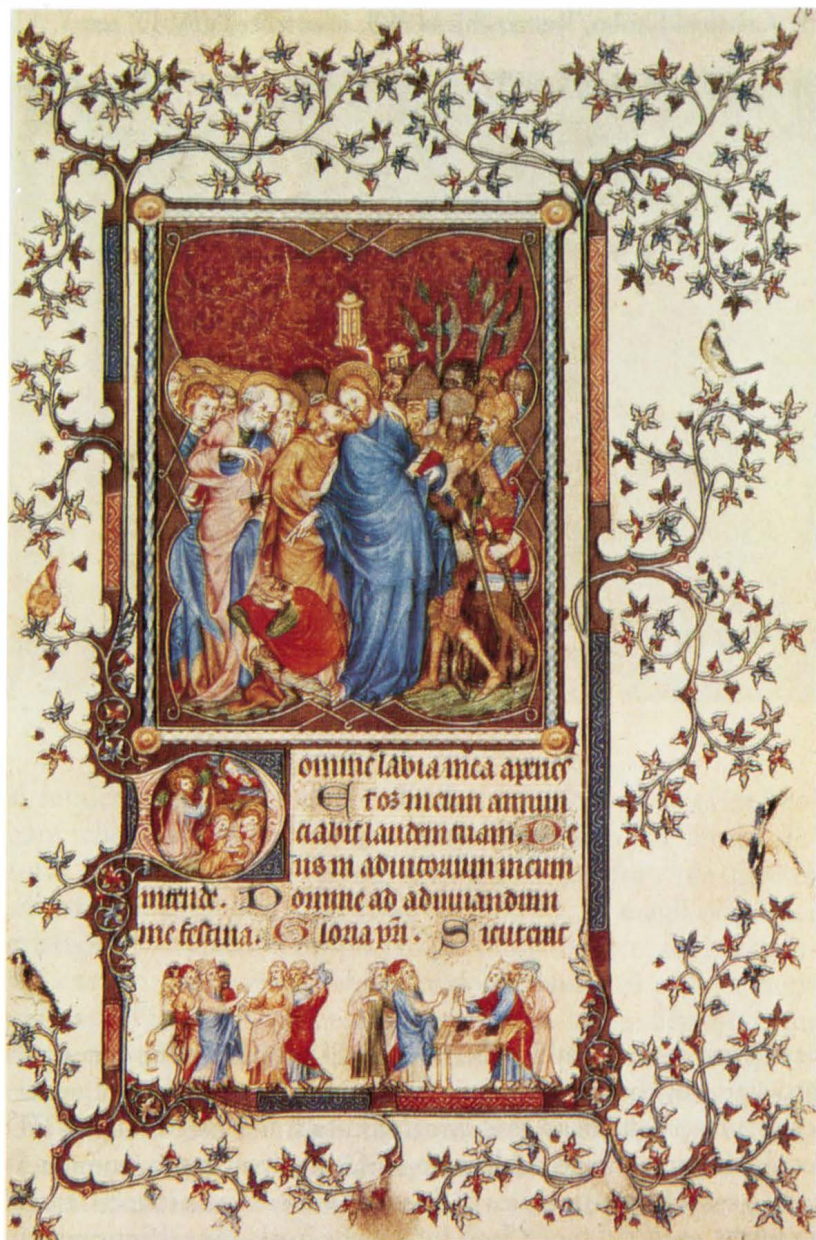 Domine labia mea aperies
Et os meum annun
ciabit laudem tuam. De
us in adiutorium meum
intende. Domine ad adiuuandum
me festina. Gloria pri. Sicut erat